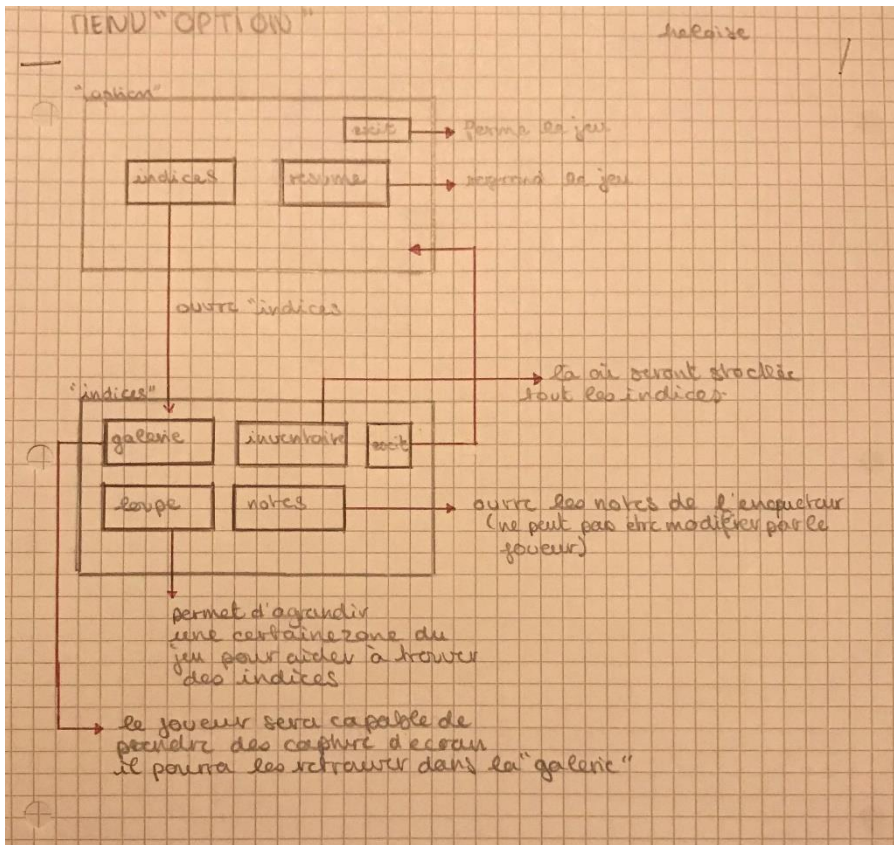 MENU "OPTION"
heloise
"option"
exit
ferme le jeu
indices
resume
reprend le jeu
ouvre "indices
la où seront stockée
tout les indices.
"indices"
galerie
inventaire
exit
loupe
notes
ouvre les notes de l'enqueteur
(ne peut pas etre modifier par le
joueur)
permet d'agrandir
une certaine zone du
jeu pour aider à trouver
des indices
le joueur sera capable de
prendre des capture d'ecran
il pourra les retrouver dans la "galerie"